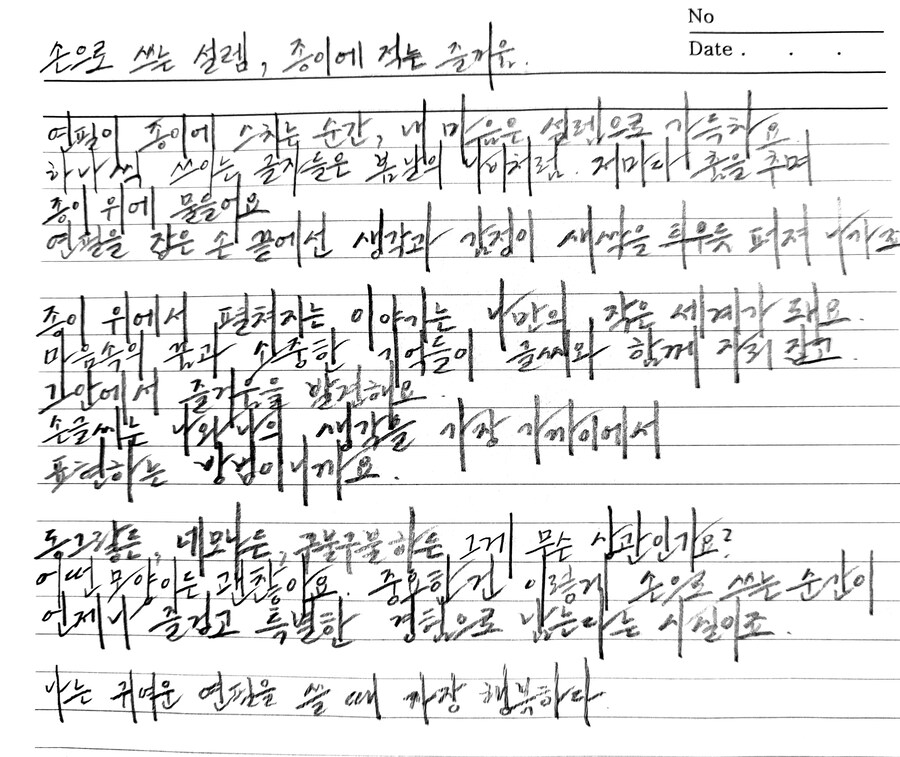 No
Date . . .
손으로 쓰는 설렘, 종이에 적는 즐거움.
연필이 종이에 스치는 순간, 내 마음은 설렘으로 가득하죠
하나씩 쓰이는 글자들은 봄날의 나비처럼. 저마다 춤을 추며
종이 위에 물들어요
연필을 잡은 손 끝에선 생각과 감정이 새싹을 틔우듯 퍼져 나가죠
종이 위에서 펼쳐지는 이야기는 나만의 작은 세계가 돼요.
마음속의 꿈과 소중한 기억들이 글씨와 함께 자리 잡고.
그 안에서 즐거움을 발견해요.
손글씨는 나와 나의 생각을 가장 가까이에서
표현하는 방법이니까요.
동그랗든, 네모나든, 구불구불하든 그게 무슨 상관인가요?
어떤 모양이든 괜찮아요. 중요한 건 이렇게 손으로 쓰는 순간이
언제나 즐겁고 특별한 경험으로 남는다는 사실이죠.
나는 귀여운 연필을 쓸 때 가장 행복하다.